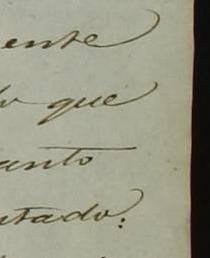 ente
que
unto
ntado: